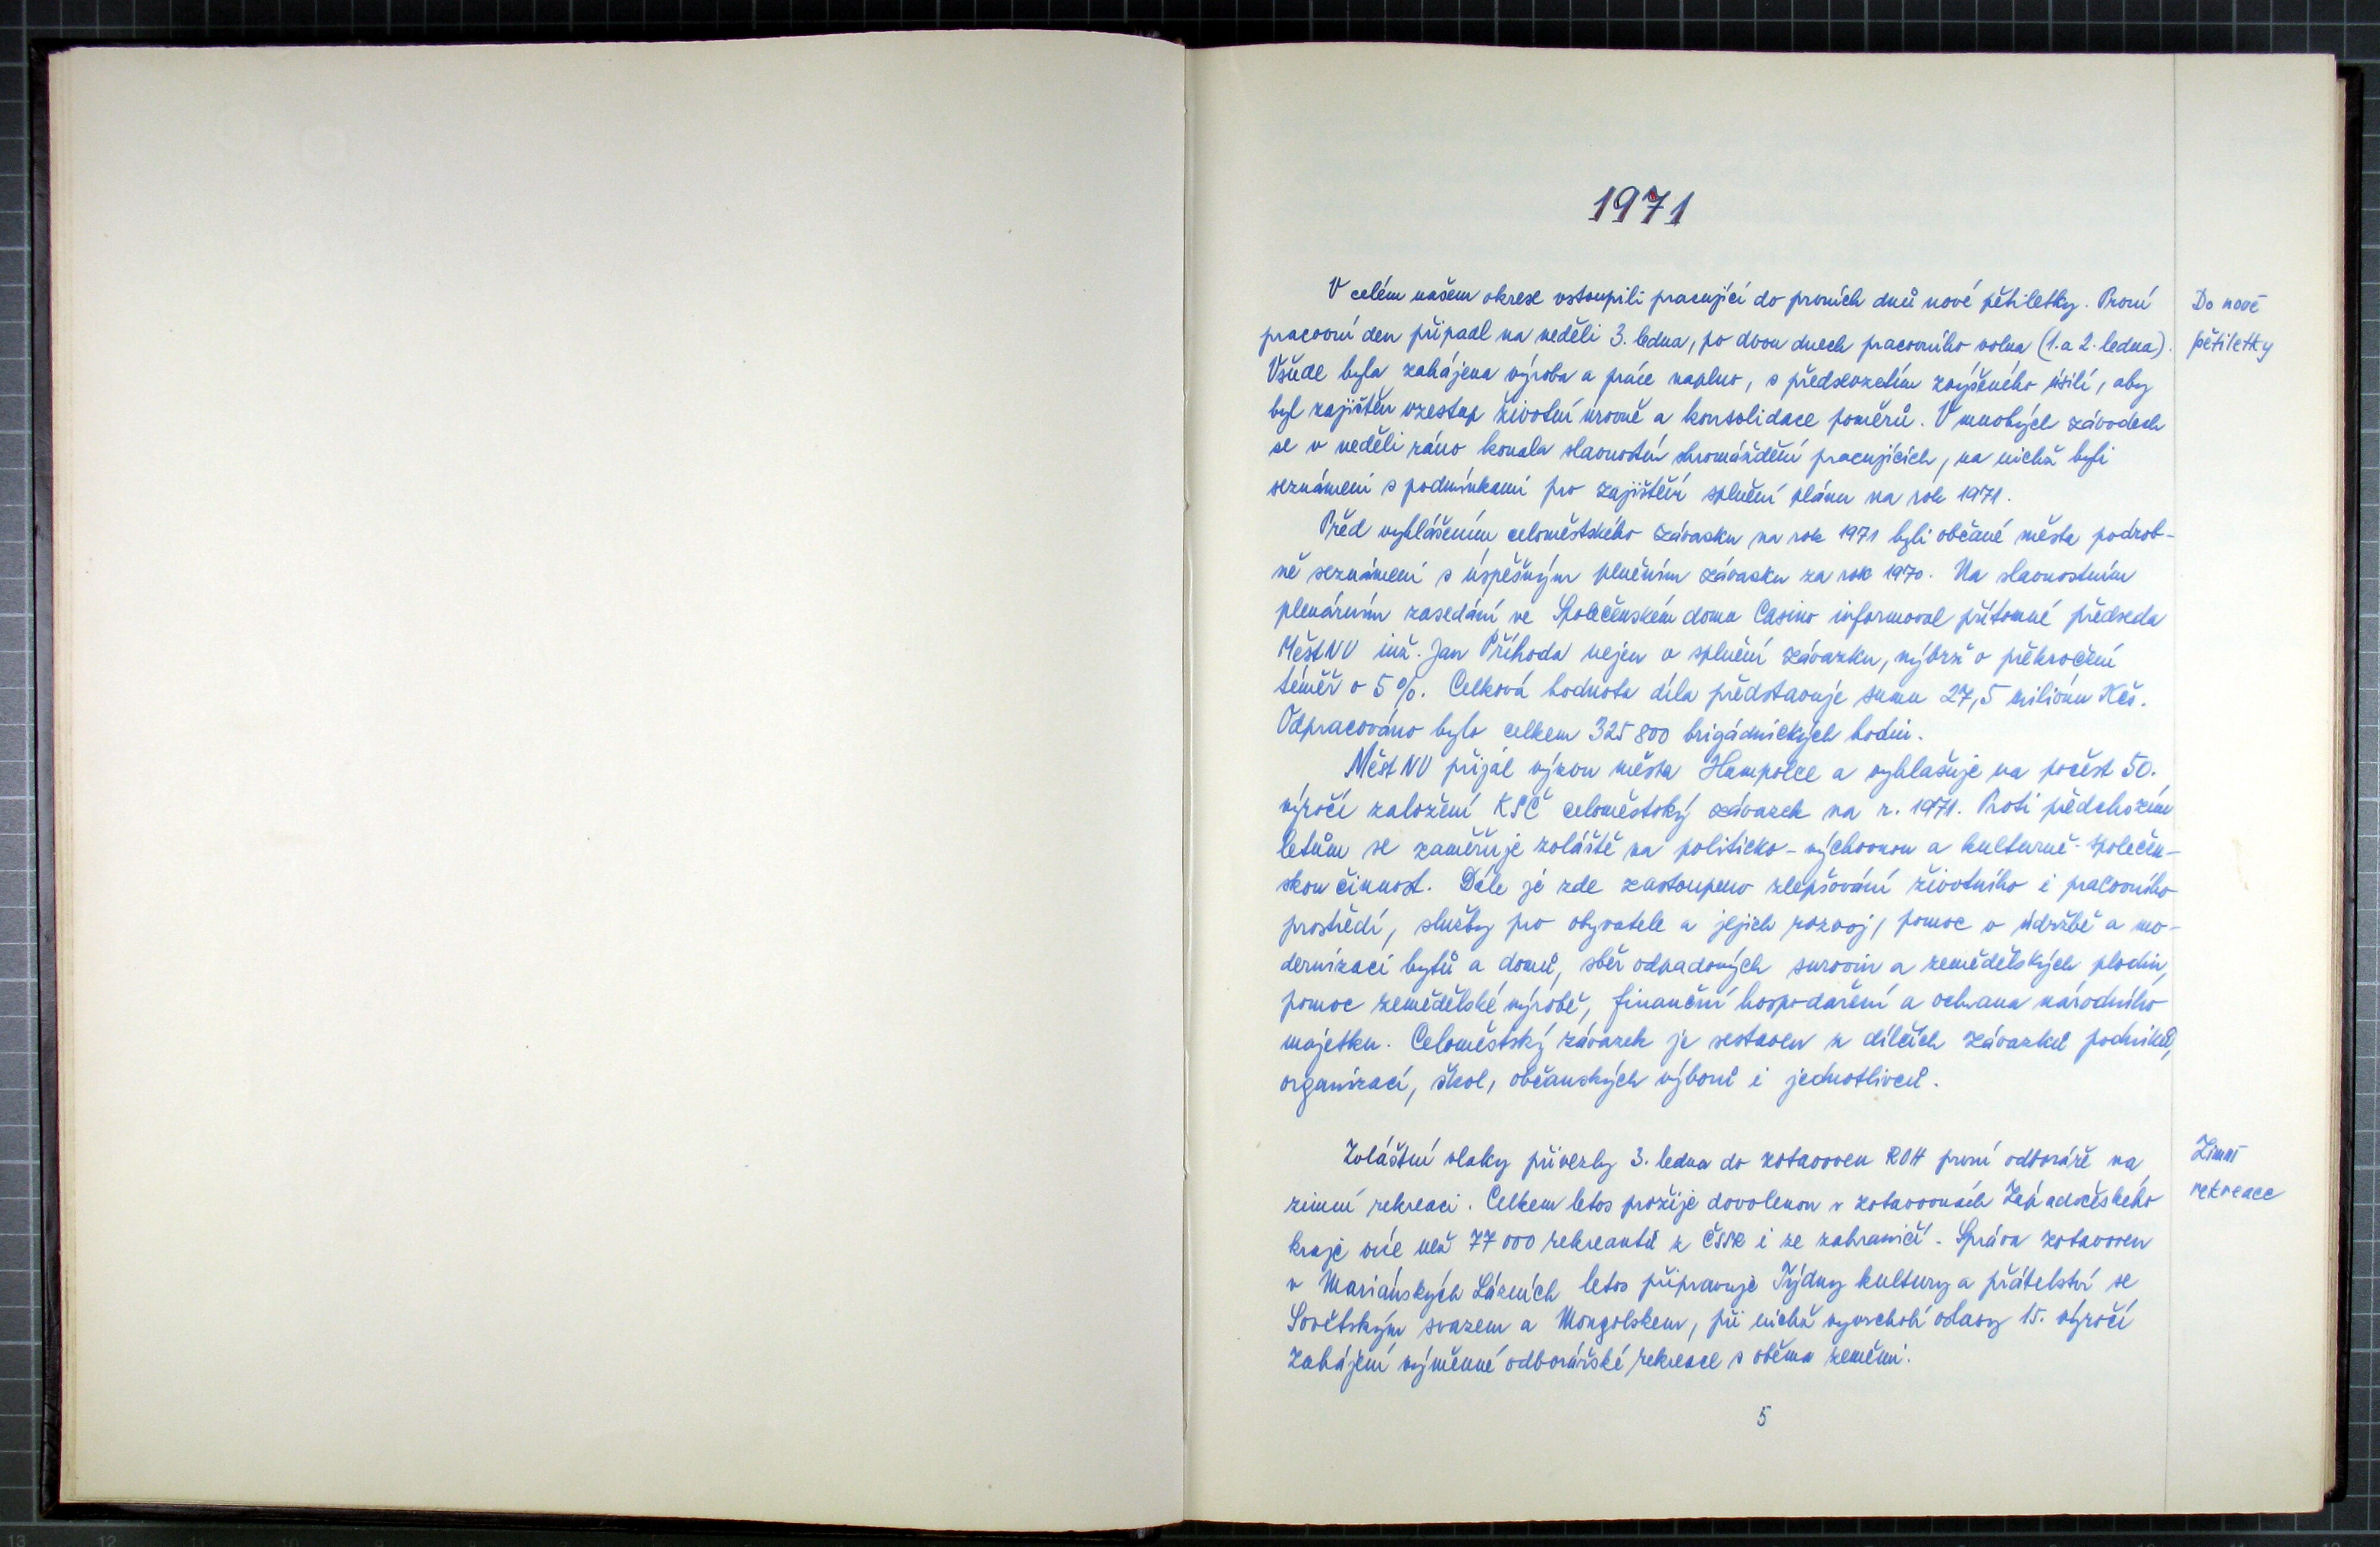 1971
V celém našem okrese vstoupili pracující do prvních dnů nové pětiletky. První
Do nové
pracovní den připadl na neděli 3. ledna, po dvou dnech pracovního volna (1. a 2. ledna).
pětiletky
Všude byla zahájena výroba a práce naplno, s předsevzetím zvýšeného úsilí, aby
byl zajištěn vzestup životní úrovně a konsolidace poměrů. V mnohých závodech
se v neděli ráno konala slavnostní shromáždění pracujících, na nichž byli
seznámeni s podmínkami pro zajištění splnění plánu na rok 1971.
Před vyhlášením celoměstského závazku na rok 1971 byli občané města podrob-
ně seznámeni s úspěšným plněním závazku za rok 1970. Na slavnostním
plenárním zasedání ve Společenském domu Casino informoval přítomné předseda
MěstNV inž. Jan Příhoda nejen o splnění závazku, nýbrž o překročení
téměř o 5%. Celková hodnota díla představuje sumu 27,5 miliónu Kčs.
Odpracováno bylo celkem 325 800 brigádnických hodin.
Měst NV přijal výzvu města Humpolce a vyhlašuje na počest 50.
výročí založení KSČ celoměstský závazek na r. 1971. Proti předchozím
letům se zaměřuje zvláště na politicko-výchovnou a kulturně-společen-
skou činnost. Dále je zde zastoupeno zlepšování životního i pracovního
prostředí, služby pro obyvatele a jejich rozvoj, pomoc v údržbě a mo-
dernizaci bytů a domů, sběr odpadových surovin a zemědělských plodin,
pomoc zemědělské výrobě, finanční hospodaření a ochrana národního
majetku. Celoměstský závazek je sestaven z dílčích závazků podniků,
organizací, škol, občanských výborů i jednotlivců.
Zvláštní vlaky přivezly 3. ledna do zotavoven ROH první odboráře na
Zimní
zimní rekreaci. Celkem letos prožije dovolenou v zotavovnách Západočeského
rekreace
kraje více než 77 000 rekreantů z ČSSR i ze zahraničí. Správa zotavoven
v Mariánských Lázních letos připravuje Týdny kultury a přátelství se
Sovětským svazem a Mongolskem, při nichž vyvrcholí oslavy 15. výročí
zahájení výměnné odborářské rekreace s oběma zeměmi.
5